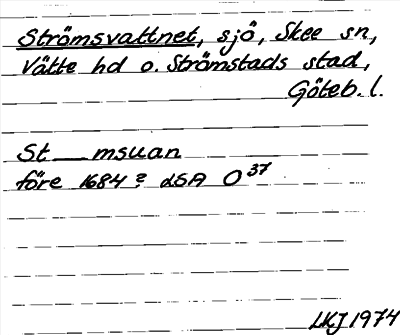 Strömsvattnet, sjö, Skee sn,
Vätte hd o. Strömstads stad,
Göteb. l.
St — msuan
före 1684? LSA O 37
LKJ 1974